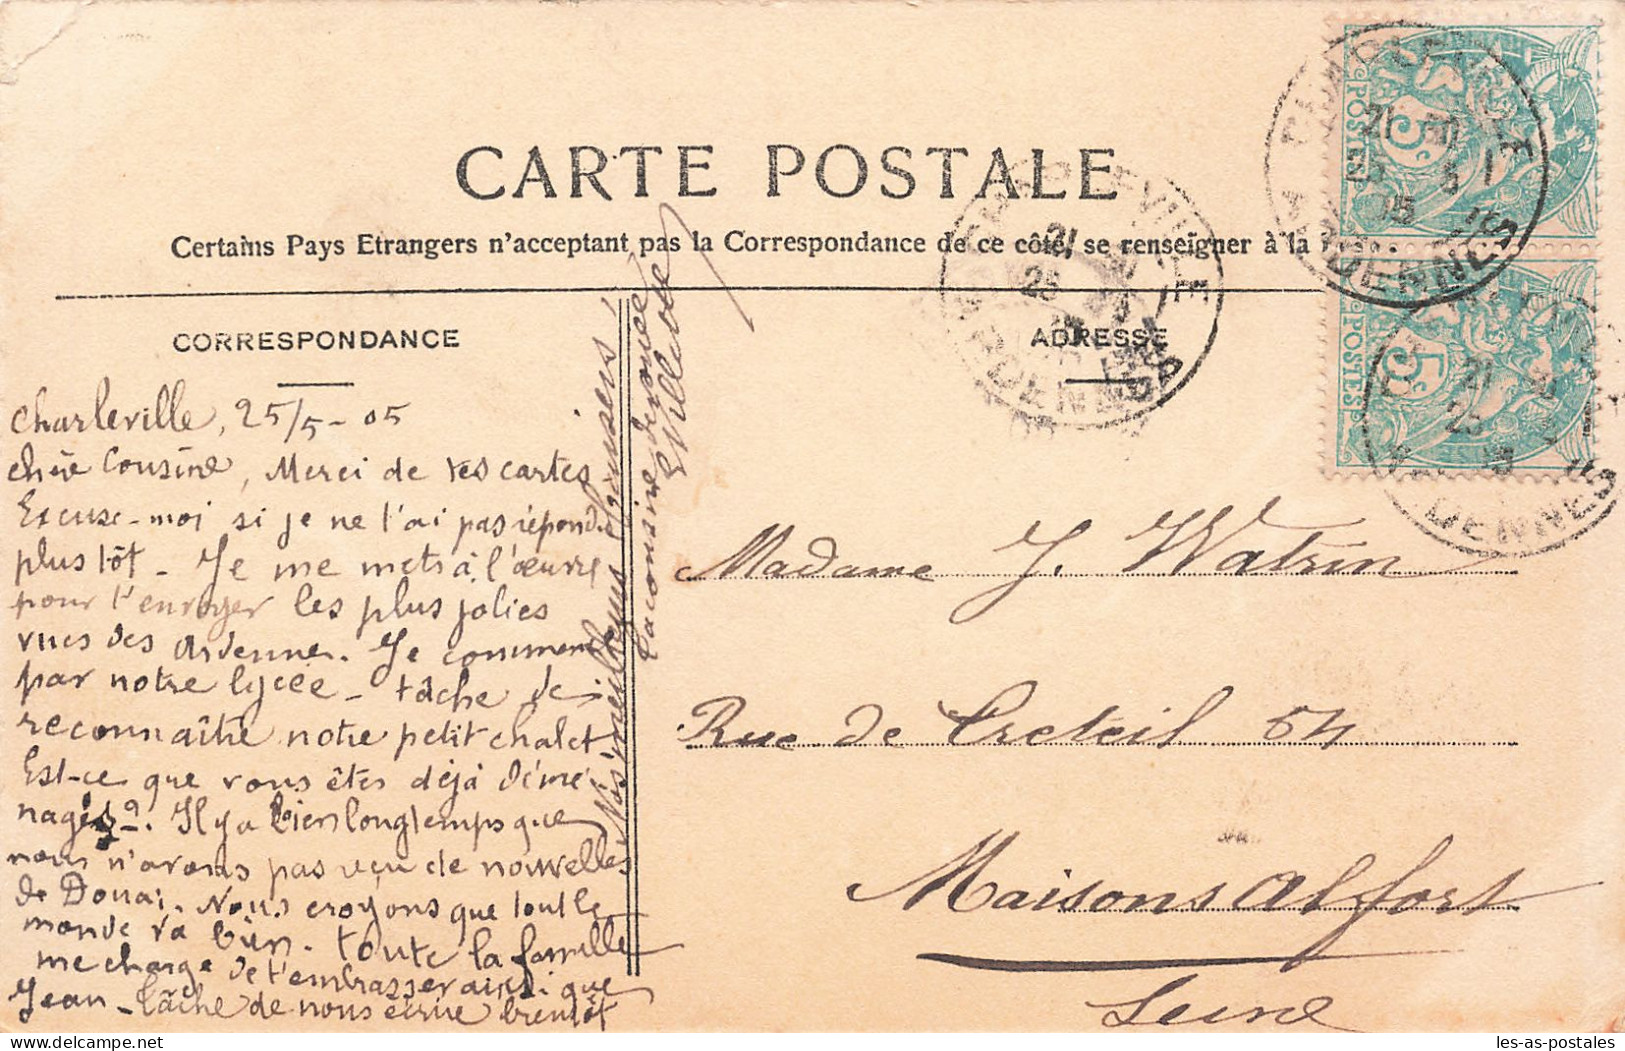 CARTE POSTALE
Certains Pays Etrangers n'acceptant pas la Correspondance de ce côté, se renseigner à la
CORRESPONDANCE
ADRESSE
Charleville, 25/5-05
chère Cousine, Merci de tes cartes
Excuse-moi si je ne t'ai pas répondu
plus tôt - Je me mets à l'œuvre
pour t'envoyer les plus jolies
vues des Ardenne. Je commence
par notre lycée - tâche de
reconnaître notre petit chalet
Est-ce que vous êtes déjà démé
nagés?. Il y a bien longtemps que
nous n'avons pas reçu de nouvelles
de Douai. Nous croyons que tout le
monde va bien. toute la famille
me charge de t'embrasser ainsi que
Jean - tâche de nous écrire bientôt
Nos meilleurs baisers
Ta cousine dévouée
Madame J. Watrin
Rue de Creteil 54
Maisons Alfort
Seine
POSTES
5c
POSTES
5c
CHARLEVILLE
21
25 5
05
ARDENNES
CHARLEVILLE
21
25
ARDENNES
21
25
ARDENNES
les-as-postales